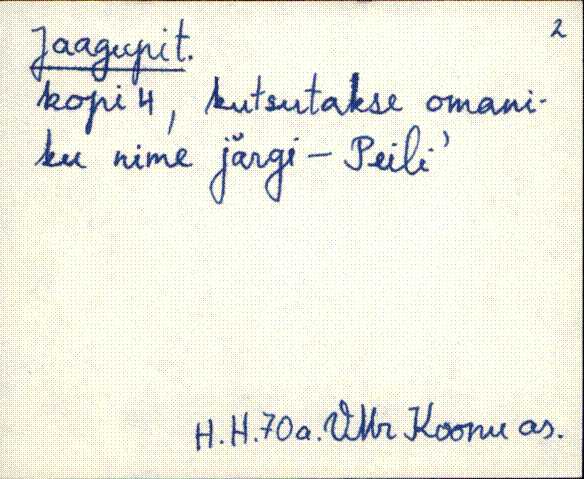 2
Jaagupit.
kopi 4, kutsutakse omani-
ku nime järgi - Peili'
H.H. 70a. Koonu as.